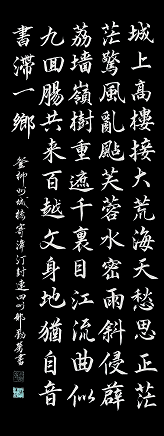 城上高樓接大荒海天愁思正茫
茫驚風亂颭芙蓉水密雨斜侵薜
荔墻嶺樹重遮千裏目江流曲似
九回腸共来百越文身地猶自音
書滯一鄉
登柳州城樓寄漳汀封連四州